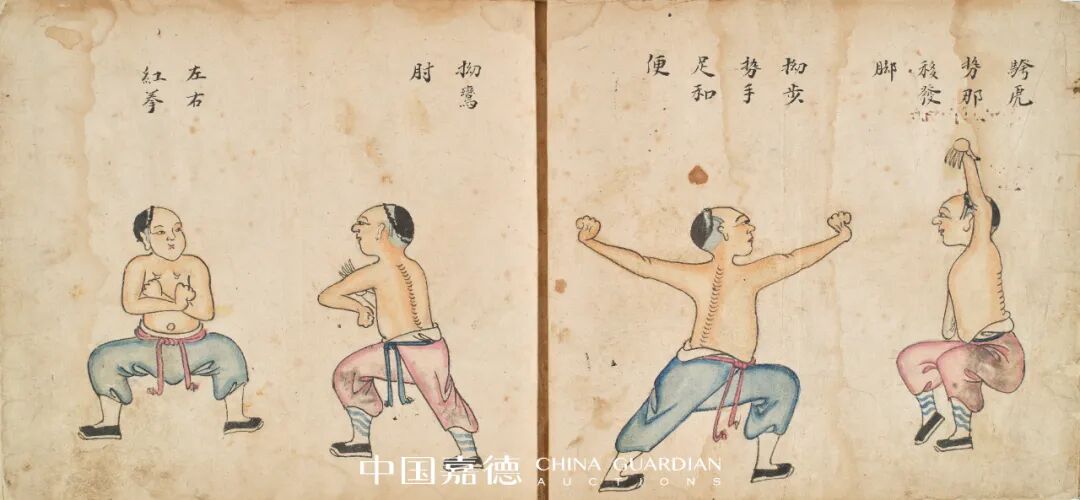 骻虎
势那
移發
脚
拗步
势手
足和
便
拗鸞
肘
左右
紅拳
中国嘉德 CHINA GUARDIAN
AUCTIONS